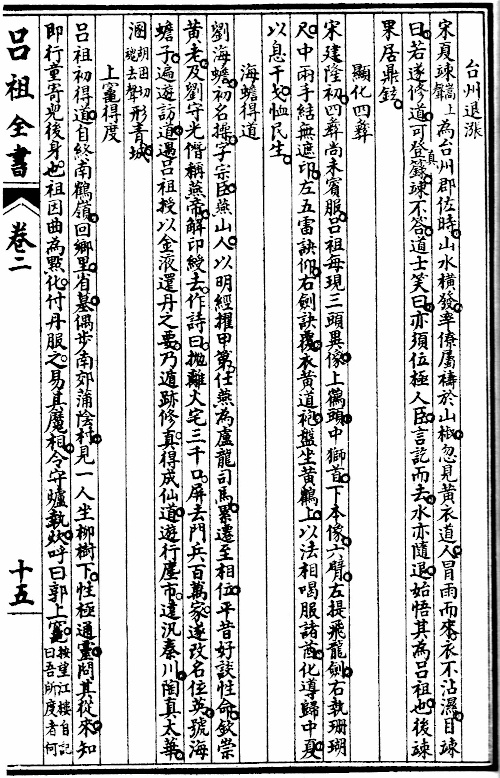 台州退漲
宋夏竦音聳上為台州郡佐時山水橫發率僚屬禱於山椒忽見黃衣道人冒雨而來衣不沾濕目竦
曰若遂修道可登真籙竦不答道士笑曰亦須位極人臣言訖而去水亦隨退始悟其為呂祖也後竦
果居鼎鉉
顯化四彝
宋建隆初四彝尚未賓服呂祖每現三頭異像上鶴頭中獅首下本像六臂左提飛龍劍右執珊瑚
尺中兩手結無遮印左五雷訣仰右劍訣覆衣黃道袍盤坐黃鶴上以法相喝服諸酋化導歸中夏
以息干戈恤民生
海蟾得道
劉海蟾初名操字宗臣燕山人以明經擢甲第仕燕為盧龍司馬累遷至相位平昔好談性命欽崇
黃老及劉守光僭稱燕帝解印綬去作詩曰拋離火宅三千口屏去門兵百萬家遂改名位英號海
蟾子遍遊訪道遇呂祖授以金液還丹之要乃遁跡修真得成仙道遊行塵市違汎秦川陶真太華
溷胡困切魂去聲形青城
上竈得度
呂祖初得道自終南鶴嶺回鄉里省墓偶步南郊蒲陰村見一人坐柳樹下性極通靈問其從來知
即行童寄兒後身也祖因曲為點化付丹服之易其魔相令守爐執炊呼曰郭上竈按望江樓自記曰吾所度者何
呂祖全書
卷二
十五